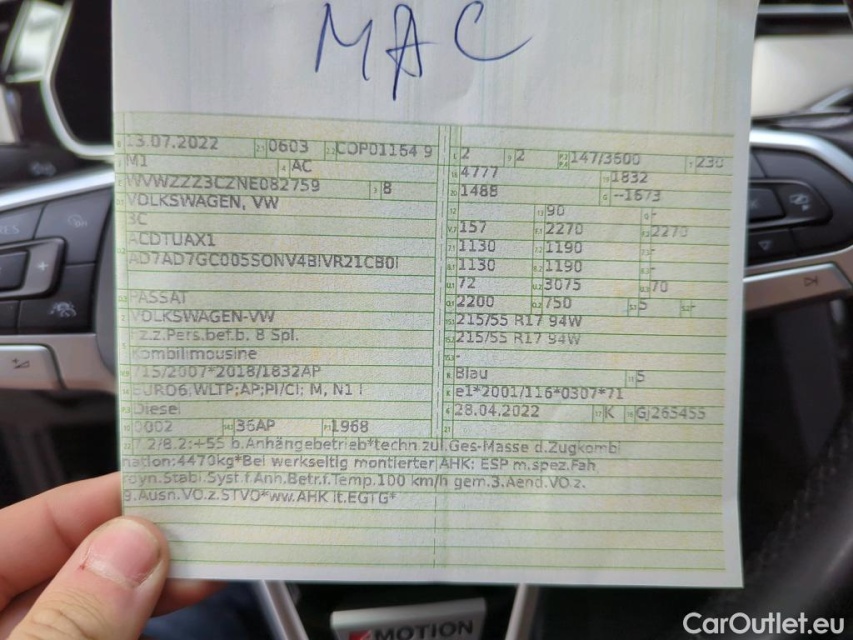 MAC
13.07.2022 0603 COP01164 9 2 2 147/3600 230
M1 AC 4777 1832
WVWZZZ3CZNE082759 8 1488 --1673
VOLKSWAGEN, VW 90 -
3C 157 2270 2270
ACDTUAX1 1130 1190 -
AD7AD7GC005SONV4BIVR21CB0I 1130 1190 -
72 3075 70
PASSAT 2200 750 5 -
VOLKSWAGEN-VW 215/55 R17 94W
Fz.z.Pers.bef.b. 8 Spl. 215/55 R17 94W
Kombilimousine -
715/2007*2018/1832AP Blau 5
EURO6;WLTP;AP;PI/CI; M, N1 I e1*2001/116*0307*71
Diesel 28.04.2022 K GJ265455
0002 36AP 1968
7.2/8.2:+55 b.Anhängebetrieb*techn zul.Ges-Masse d.Zugkombi
nation:4470kg*Bei werkseitig montierter AHK: ESP m.spez.Fah
rdyn.Stabi.Syst.f.Anh.Betr.f.Temp.100 km/h gem.3.Aend.VO.z.
9.Ausn.VO.z.STVO*ww.AHK lt.EGTG*
MOTION
CarOutlet.eu